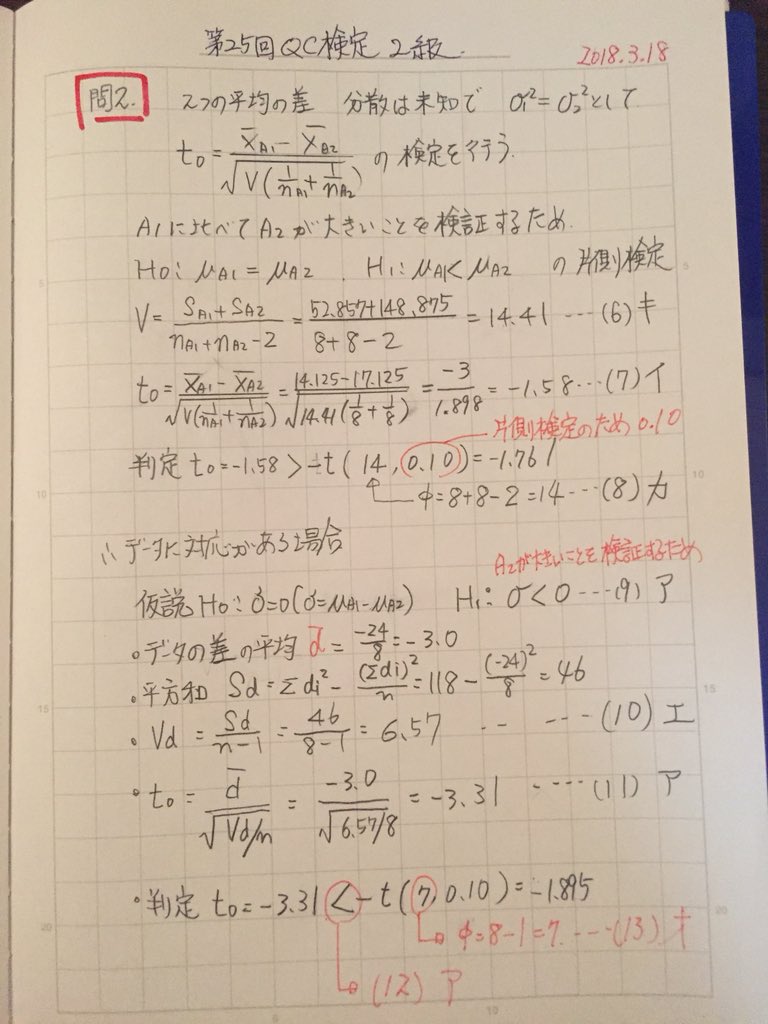 第25回QC検定 2級.
2018.3.18
問2.
2つの平均の差 分散は未知で σ₁²=σ₂²として
t₀ = (x̄A1 − x̄A2)/√(V(1/nA1 + 1/nA2)) の検定を行う.
A1に比べてA2が大きいことを検証するため.
H₀: μA1 = μA2 , H₁: μA1 < μA2 の片側検定
V = (SA1 + SA2)/(nA1 + nA2 − 2) = (52.857+148.875)/(8+8−2) = 14.41 ---(6) キ
t₀ = (x̄A1 − x̄A2)/√(V(1/nA1 + 1/nA2)) = (14.125−17.125)/√(14.41(1/8 + 1/8)) = −3/1.898 = −1.58 ---(7) イ
片側検定のため 0.10
判定 t₀=−1.58 > −t(14, 0.10) = −1.761
φ=8+8−2=14 ---(8) カ
∴データに対応がある場合
A2が大きいことを検証するため
仮説 H₀: δ=0 (δ=μA1−μA2) H₁: δ<0 ---(9) ア
・データの差の平均 d̄ = −24/8 = −3.0
・平方和 Sd = Σdi² − (Σdi)²/n = 118 − (−24)²/8 = 46
・Vd = Sd/(n−1) = 46/(8−1) = 6.57 -- ---(10) エ
・t₀ = d̄/√(Vd/n) = −3.0/√(6.57/8) = −3.31 ----(11) ア
・判定 t₀=−3.31 < −t(7, 0.10) = −1.895
φ=8−1=7. ---(13) オ
(12) ア
5
10
15
20
5
10
15
20
5
10